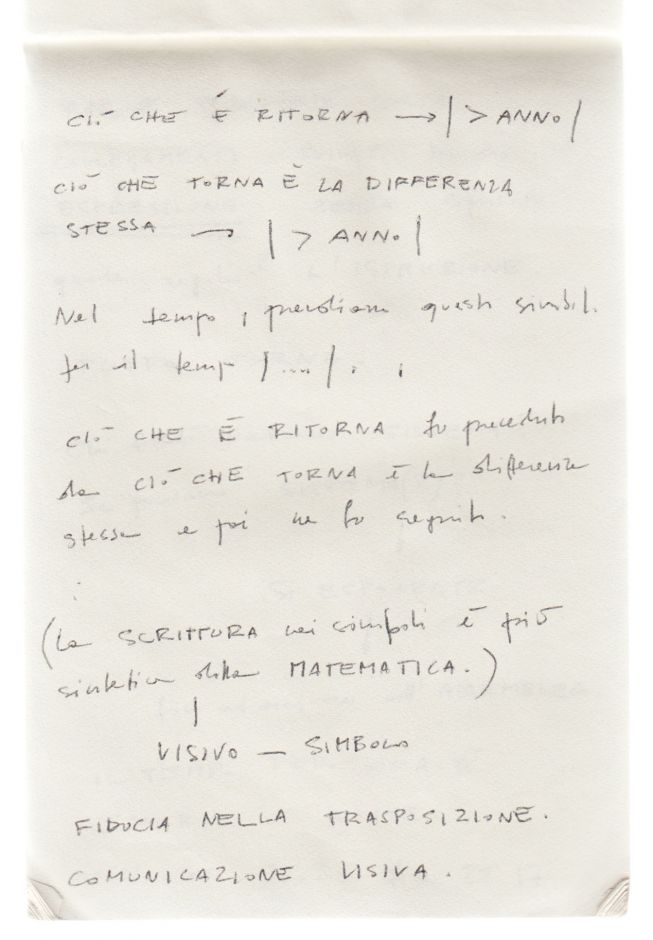 CIÒ CHE È RITORNA → | > ANNO |
CIÒ CHE TORNA È LA DIFFERENZA
STESSA → | > ANNO |
Nel tempo, prendiam questi simboli
per il tempo | .... | . ,
CIÒ CHE È RITORNA fu preceduto
da CIÒ CHE TORNA è la differenza
stessa e poi ne fu seguito.
:
(La SCRITTURA nei simboli è più
sintetica della MATEMATICA.)
|
VISIVO — SIMBOLO
FIDUCIA NELLA TRASPOSIZIONE.
COMUNICAZIONE VISIVA.